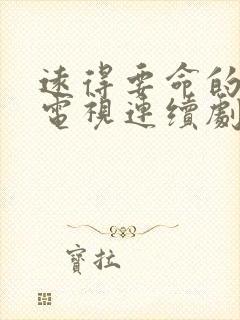 遠得要命的
電視連續劇
寶拉